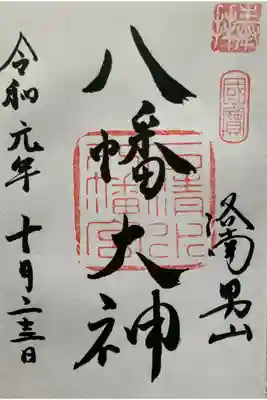 奉拝
國寶
洛南男山
八幡大神
石清水八幡宮
令和元年十月二十三日